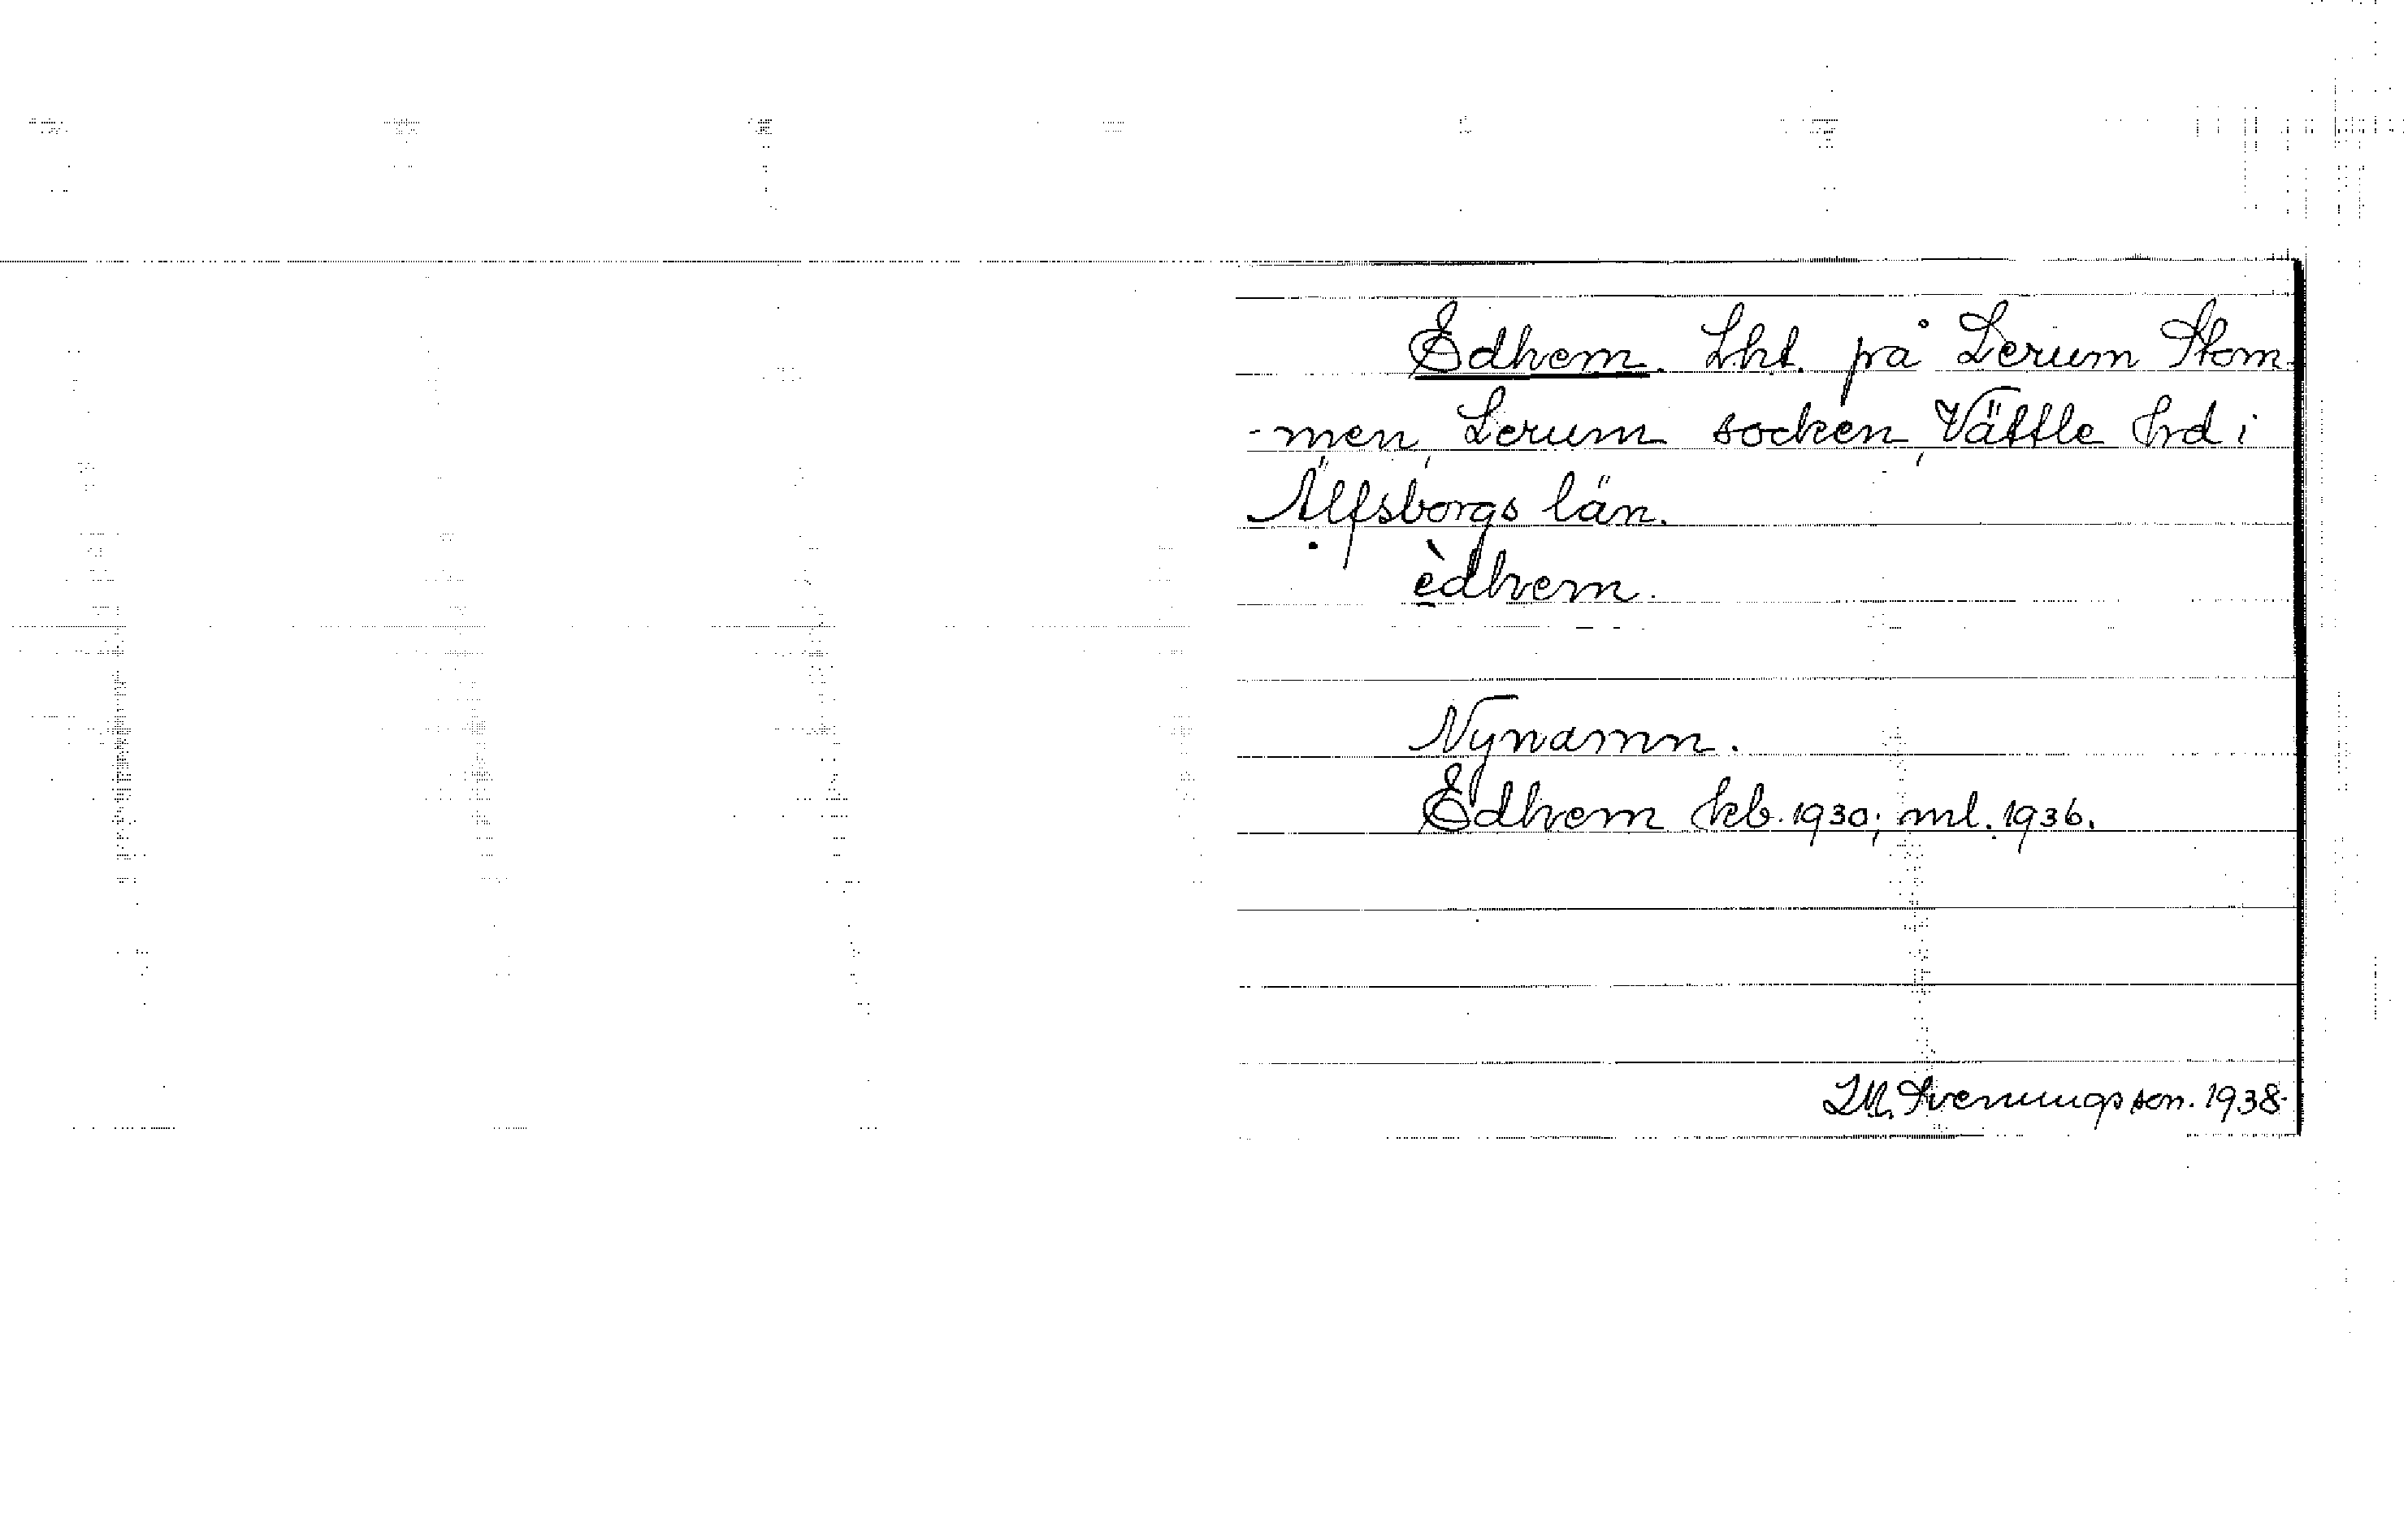 Edhem. Lht. på Lerum Stom-
-men, Lerum socken, Vättle hrd i
Älfsborgs län.
èdhem.
Nynamn.
Edhem kb. 1930; ml. 1936.
I.M. Svenungsson. 1938.